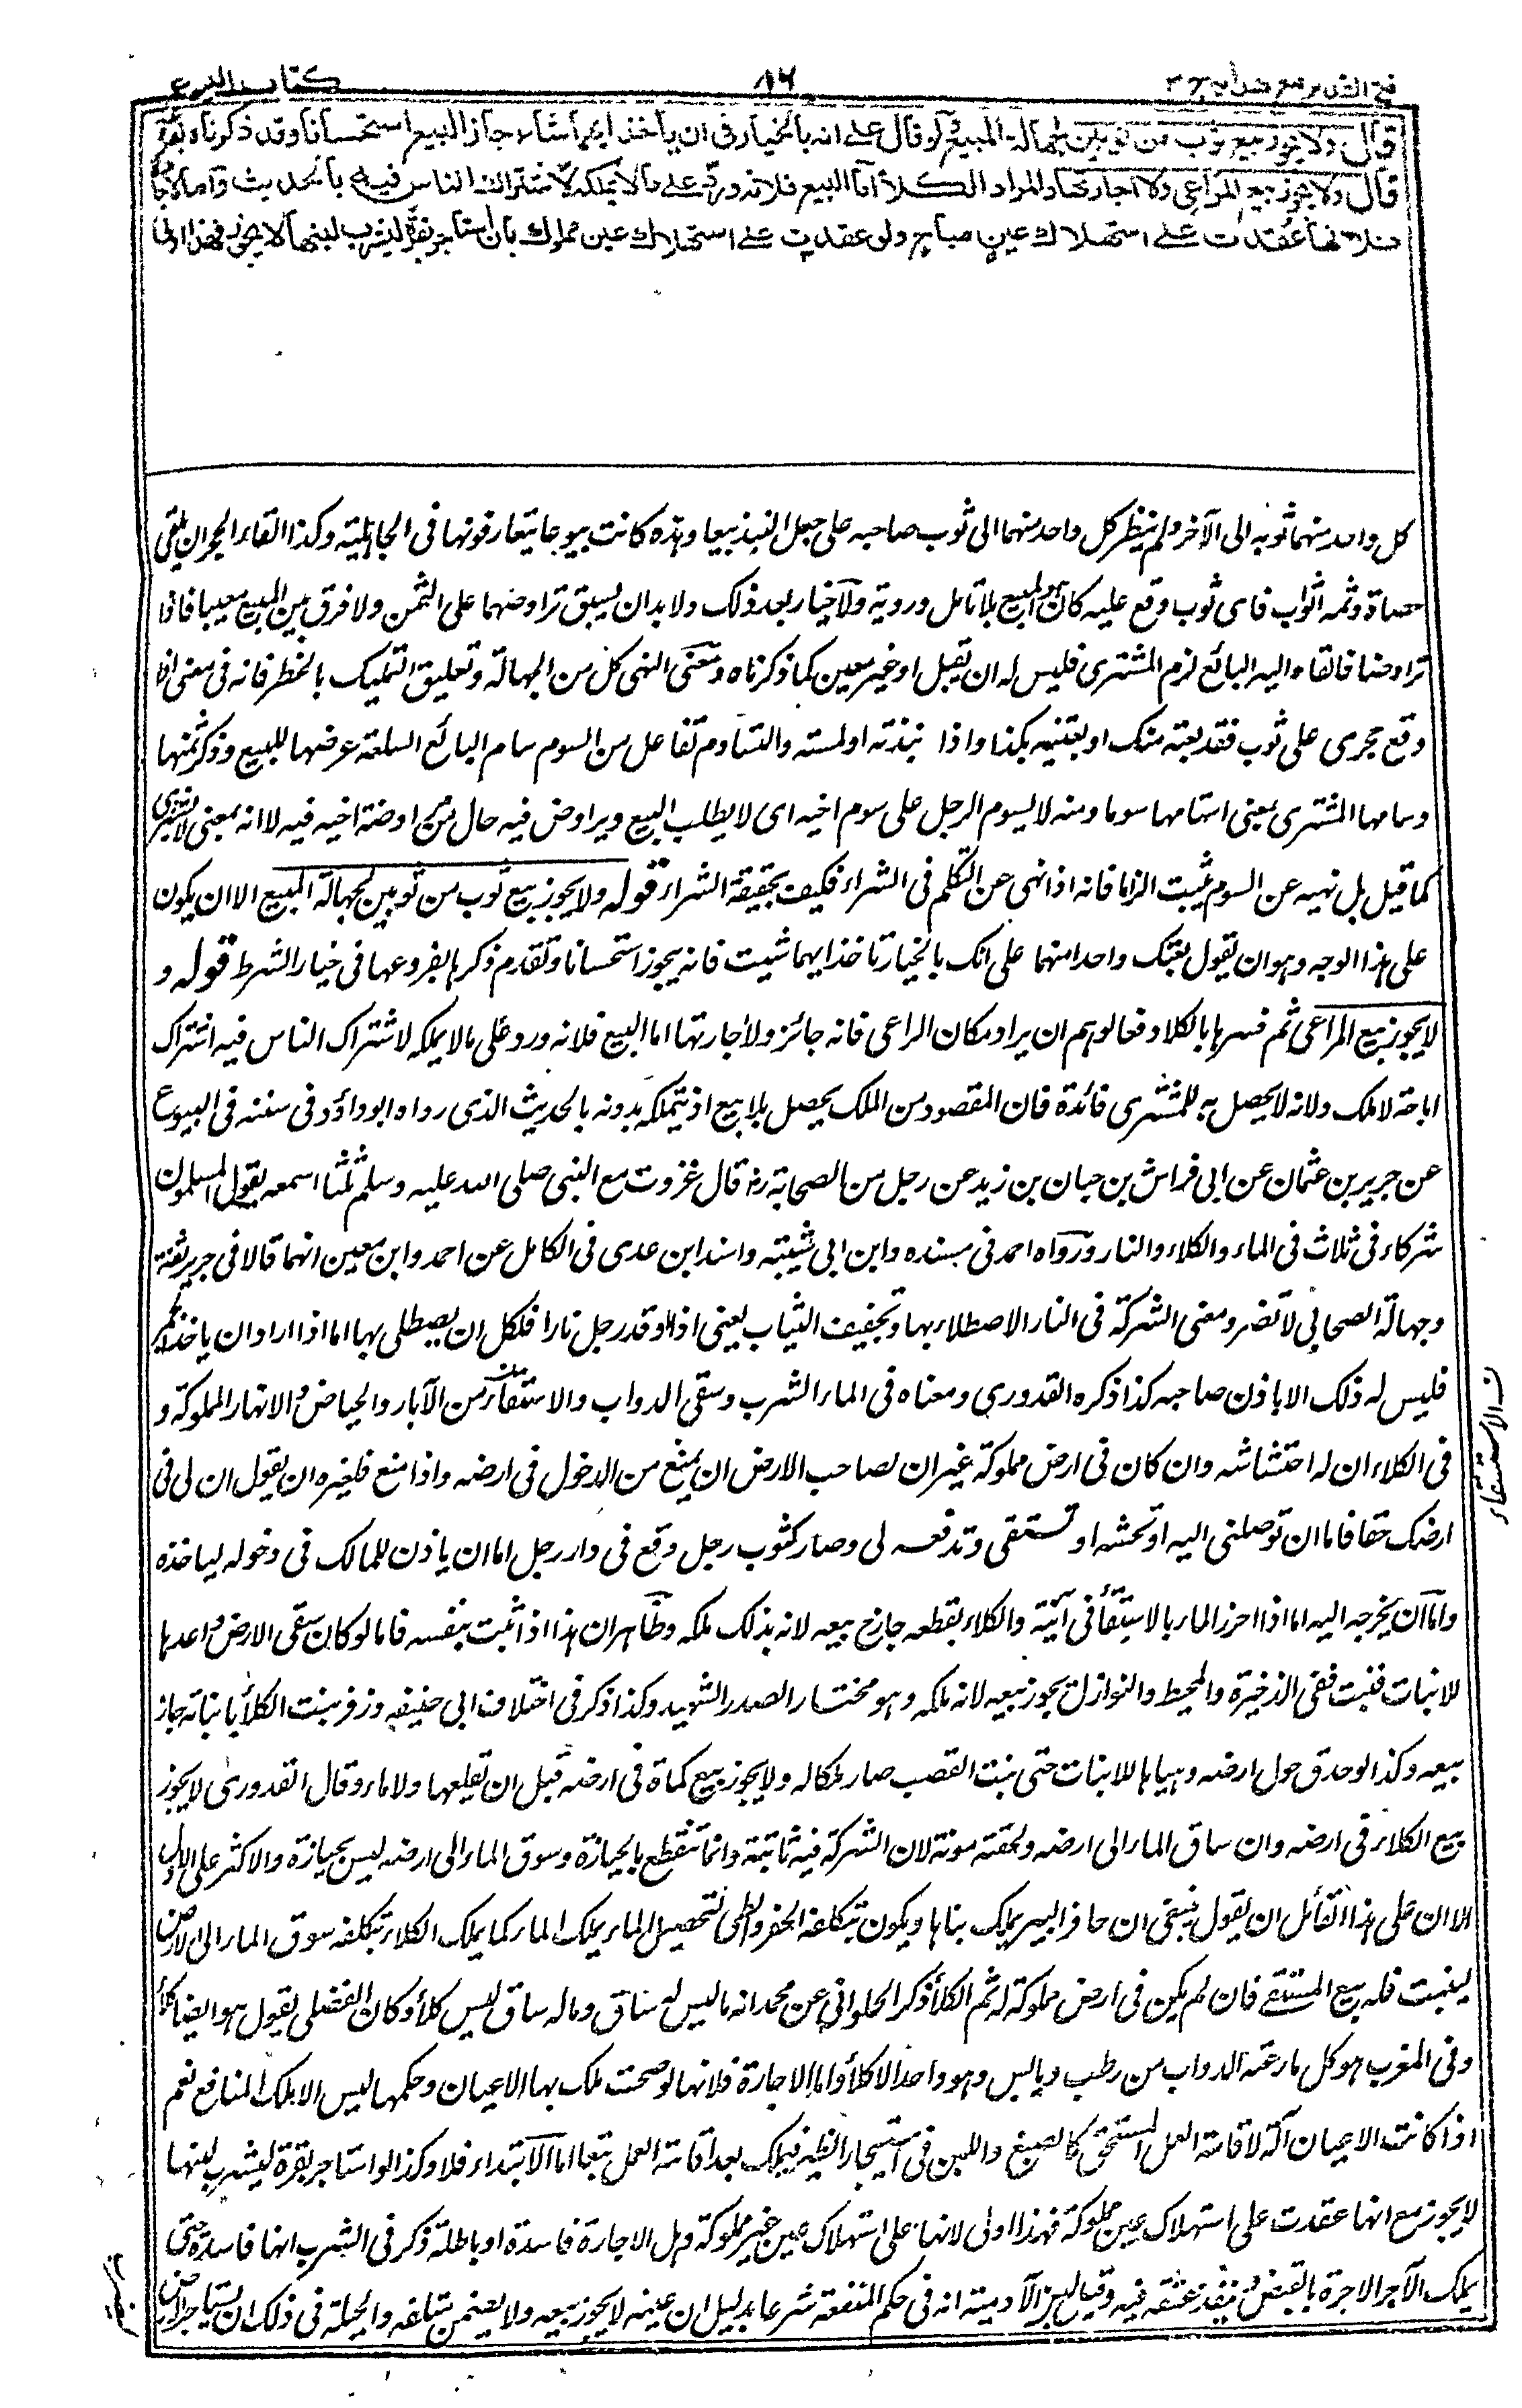 فتح القدير مع هدايه ج ٣
٨٦
كتاب البيوع
قال ولا يجوز بيع ثوب من ثوبين لجهالة المبيع ولو قال على انه بالخيار فى ان ياخذ ايهما شاء جاز البيع استحسانا وقد ذكرناه بفروعه
قال ولا يجوز بيع المراعى ولا اجارتها والمراد الكلأ اما البيع فلانه ورد على ما لا يملكه لاشتراك الناس فيه بالحديث واما الاجارة
فلانها عقدت على استهلاك عين مباح ولو عقدت على استهلاك عين مملوك بان استاجر بقرة ليشرب لبنها لا يجوز فهذا اولى
كل واحد منهما ثوبه الى الآخر ولم ينظر كل واحد منهما الى ثوب صاحبه على جعل النبذ بيعا وهذه كانت بيوعا يتعارفونها فى الجاهلية وكذا القاء الحجر ان يلقى
حصاة وثمه اثواب فاى ثوب وقع عليه كان هو المبيع بلا تامل وروية ولا خيار بعد ذلك ولا بد ان يسبق تراوضهما على الثمن ولا فرق بين المبيع معينا فاذا
تراوضا فالقاه اليه البائع لزم المشترى فليس له ان يقبل او غير معين كما ذكرناه ومعنى النهى كل من الجهالة وتعليق التمليك بالخطر فانه فى معنى اذا
وقع حجرى على ثوب فقد بعته منك او بعتنيه بكذا واذا نبذته او لمسته والتساوم تفاعل من السوم سام البائع السلعة عرضها للبيع وذكر ثمنها
وسامها المشترى بمعنى استامها سوما ومنه لا يسوم الرجل على سوم اخيه اى لا يطلب البيع ويراوض فيه حال مراوضة اخيه فيه لا انه بمعنى لا يشترى
كما قيل بل نهيه عن السوم يثبت الزاما فانه اذا نهى عن التكلم فى الشراء فكيف بحقيقة الشراء قوله ولا يجوز بيع ثوب من ثوبين لجهالة المبيع الا ان يكون
على هذا الوجه وهو ان يقول بعتك واحدا منهما على انك بالخيار تاخذ ايهما شئت فانه يجوز استحسانا وتقدم ذكرها بفروعها فى خيار الشرط قوله و
لا يجوز بيع المراعى ثم فسرها بالكلاء دفعا لوهم ان يراد مكان الراعى فانه جائز ولا اجارتها اما البيع فلانه ورد على ما لا يملكه لاشتراك الناس فيه اشتراك
اباحة لا ملك ولانه لا يحصل به للمشترى فائدة فان المقصود من الملك يحصل بلا بيع اذ يتملكه بدونه بالحديث الذى رواه ابو داؤد فى سننه فى البيوع
عن جرير بن عثمان عن ابى فراش بن حبان بن زيد عن رجل من الصحابة رض قال غزوت مع النبى صلى الله عليه وسلم ثلثا اسمعه يقول المسلمون
شركاء فى ثلاث فى الماء والكلاء والنار ورواه احمد فى مسنده وابن ابى شيبته واسند ابن عدى فى الكامل عن احمد وابن معين انهما قالا فى جرير ثقة
وجهالة الصحابى لا تضر ومعنى الشركة فى النار الاصطلاء بها وتجفيف الثياب يعنى اذا اوقد رجل نارا فلكل ان يصطلى بها اما اذا اراد ان ياخذ الجمر
فليس له ذلك الا باذن صاحبه كذا ذكره القدورى ومعناه فى الماء الشرب وسقى الدواب والاستقاء من الآبار والحياض والانهار المملوكة و
فى الكلاء ان له احتشاشه وان كان فى ارض مملوكة غير ان لصاحب الارض ان يمنع من الدخول فى ارضه واذا منع فلغيره ان يقول ان لى فى
ارضك حقا فاما ان توصلنى اليه او تحشه او تستقى وتدفعه لى وصار كثوب رجل وقع فى دار رجل اما ان ياذن للمالك فى دخوله لياخذه
واما ان يخرجه اليه اما اذا احرز الماء بالاستقاء فى آنية والكلاء بقطعه جاز ح بيعه لانه بذلك ملكه وظاهر ان هذا اذا نبت بنفسه فاما لو كان سقى الارض واعدها
للانبات فنبت ففى الذخيرة والمحيط والنوازل يجوز بيعه لانه ملكه وهو مختار الصدر الشهيد وكذا ذكر فى اختلاف ابى حنيفه وزفر نبت الكلأ بانباته جاز
بيعه وكذا لو حدق حول ارضه وهياها للانبات حتى نبت القصب صار ملكا له ولا يجوز بيع كماة فى ارضه قبل ان تقلعها ولا ماء وقال القدورى لا يجوز
بيع الكلاء فى ارضه وان ساق الماء الى ارضه ولحقته مونة لان الشركة فيه ثابتة وانما تنقطع بالحيازة وسوق الماء الى ارضه ليس بحيازة والاكثر على الاول
الا ان على هذا القائل ان يقول ينبغى ان حافر البير يملك بناها ويكون بتكلفه الحفر والطى لتحصيل الماء يملك الماء كما يملك الكلاء بتكلفه سوق الماء الى الارض
لينبت فله بيع المستقى فان لم يكن فى ارض مملوكة له ثم الكلأ ذكر الحلوانى عن محمد انه ما ليس له ساق وما له ساق ليس كلأ وكان الفضلى يقول هو ايضا كلأ
وفى المغرب هو كل ما رعته الدواب من رطب ويابس وهو واحد الاكلأ واما الاجارة فلانها لو صحت ملك بها الاعيان وحكمها ليس الا ملك المنافع نعم
اذا كانت الاعيان آلة لاقامة العمل المستحق كالصبغ واللبن فى استيجار الظئر فيملك بعد اقامة العمل تبعا اما الابتداء فلا وكذا لو استاجر بقرة ليشرب لبنها
لا يجوز مع انها عقدت على استهلاك عين مملوكة فهذا اولى لانها على استهلاك عين غير مملوكة وهل الاجارة فاسدة او باطلة ذكر فى الشرب انها فاسدة حتى
يملك الآجر الاجرة بالقبض وينفذ عتقه فيه وقيل لبن الآدمية انه فى حكم المنفعة شرعا بدليل ان عينه لا يجوز بيعه ولا يضمن متلفه والحيلة فى ذلك ان يستاجر الارض
ن الاستقاء